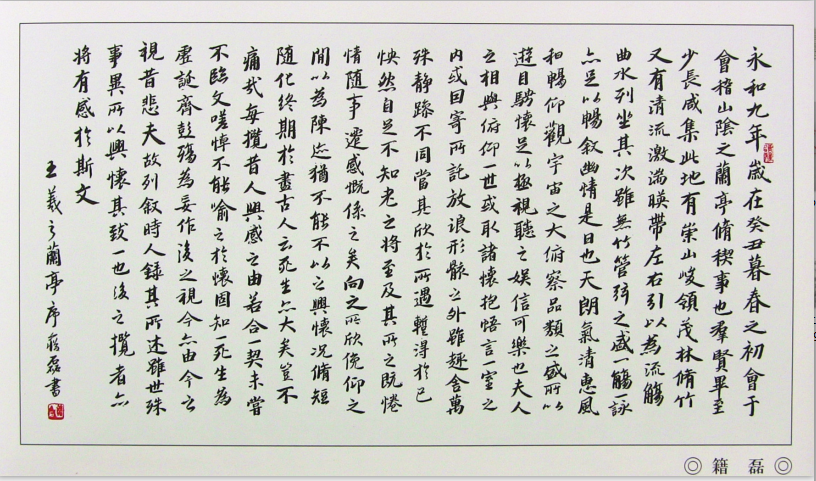 永和九年歲在癸丑暮春之初會于
會稽山陰之蘭亭脩稧事也羣賢畢至
少長咸集此地有崇山峻領茂林脩竹
又有清流激湍暎帶左右引以為流觴
曲水列坐其次雖無竹管弦之盛一觴一詠
亦足以暢敘幽情是日也天朗氣清惠風
和暢仰觀宇宙之大俯察品類之盛所以
遊目騁懷足以極視聽之娛信可樂也夫人
之相與俯仰一世或取諸懷抱悟言一室之
內或因寄所託放浪形骸之外雖趣舍萬
殊静躁不同當其欣於所遇蹔得於己
怏然自足不知老之將至及其所之既惓
情隨事遷感慨係之矣向之所欣俛仰之
閒以為陳迹猶不能不以之興懷況脩短
隨化終期於盡古人云死生亦大矣豈不
痛哉每攬昔人興感之由若合一契未嘗
不臨文嗟悼不能喻之於懷固知一死生為
虛誕齊彭殤為妄作後之視今亦由今之
視昔悲夫故列敘時人錄其所述雖世殊
事異所以興懷其致一也後之攬者亦
將有感於斯文
王羲之蘭亭序籍磊書
◎ 籍 磊 ◎